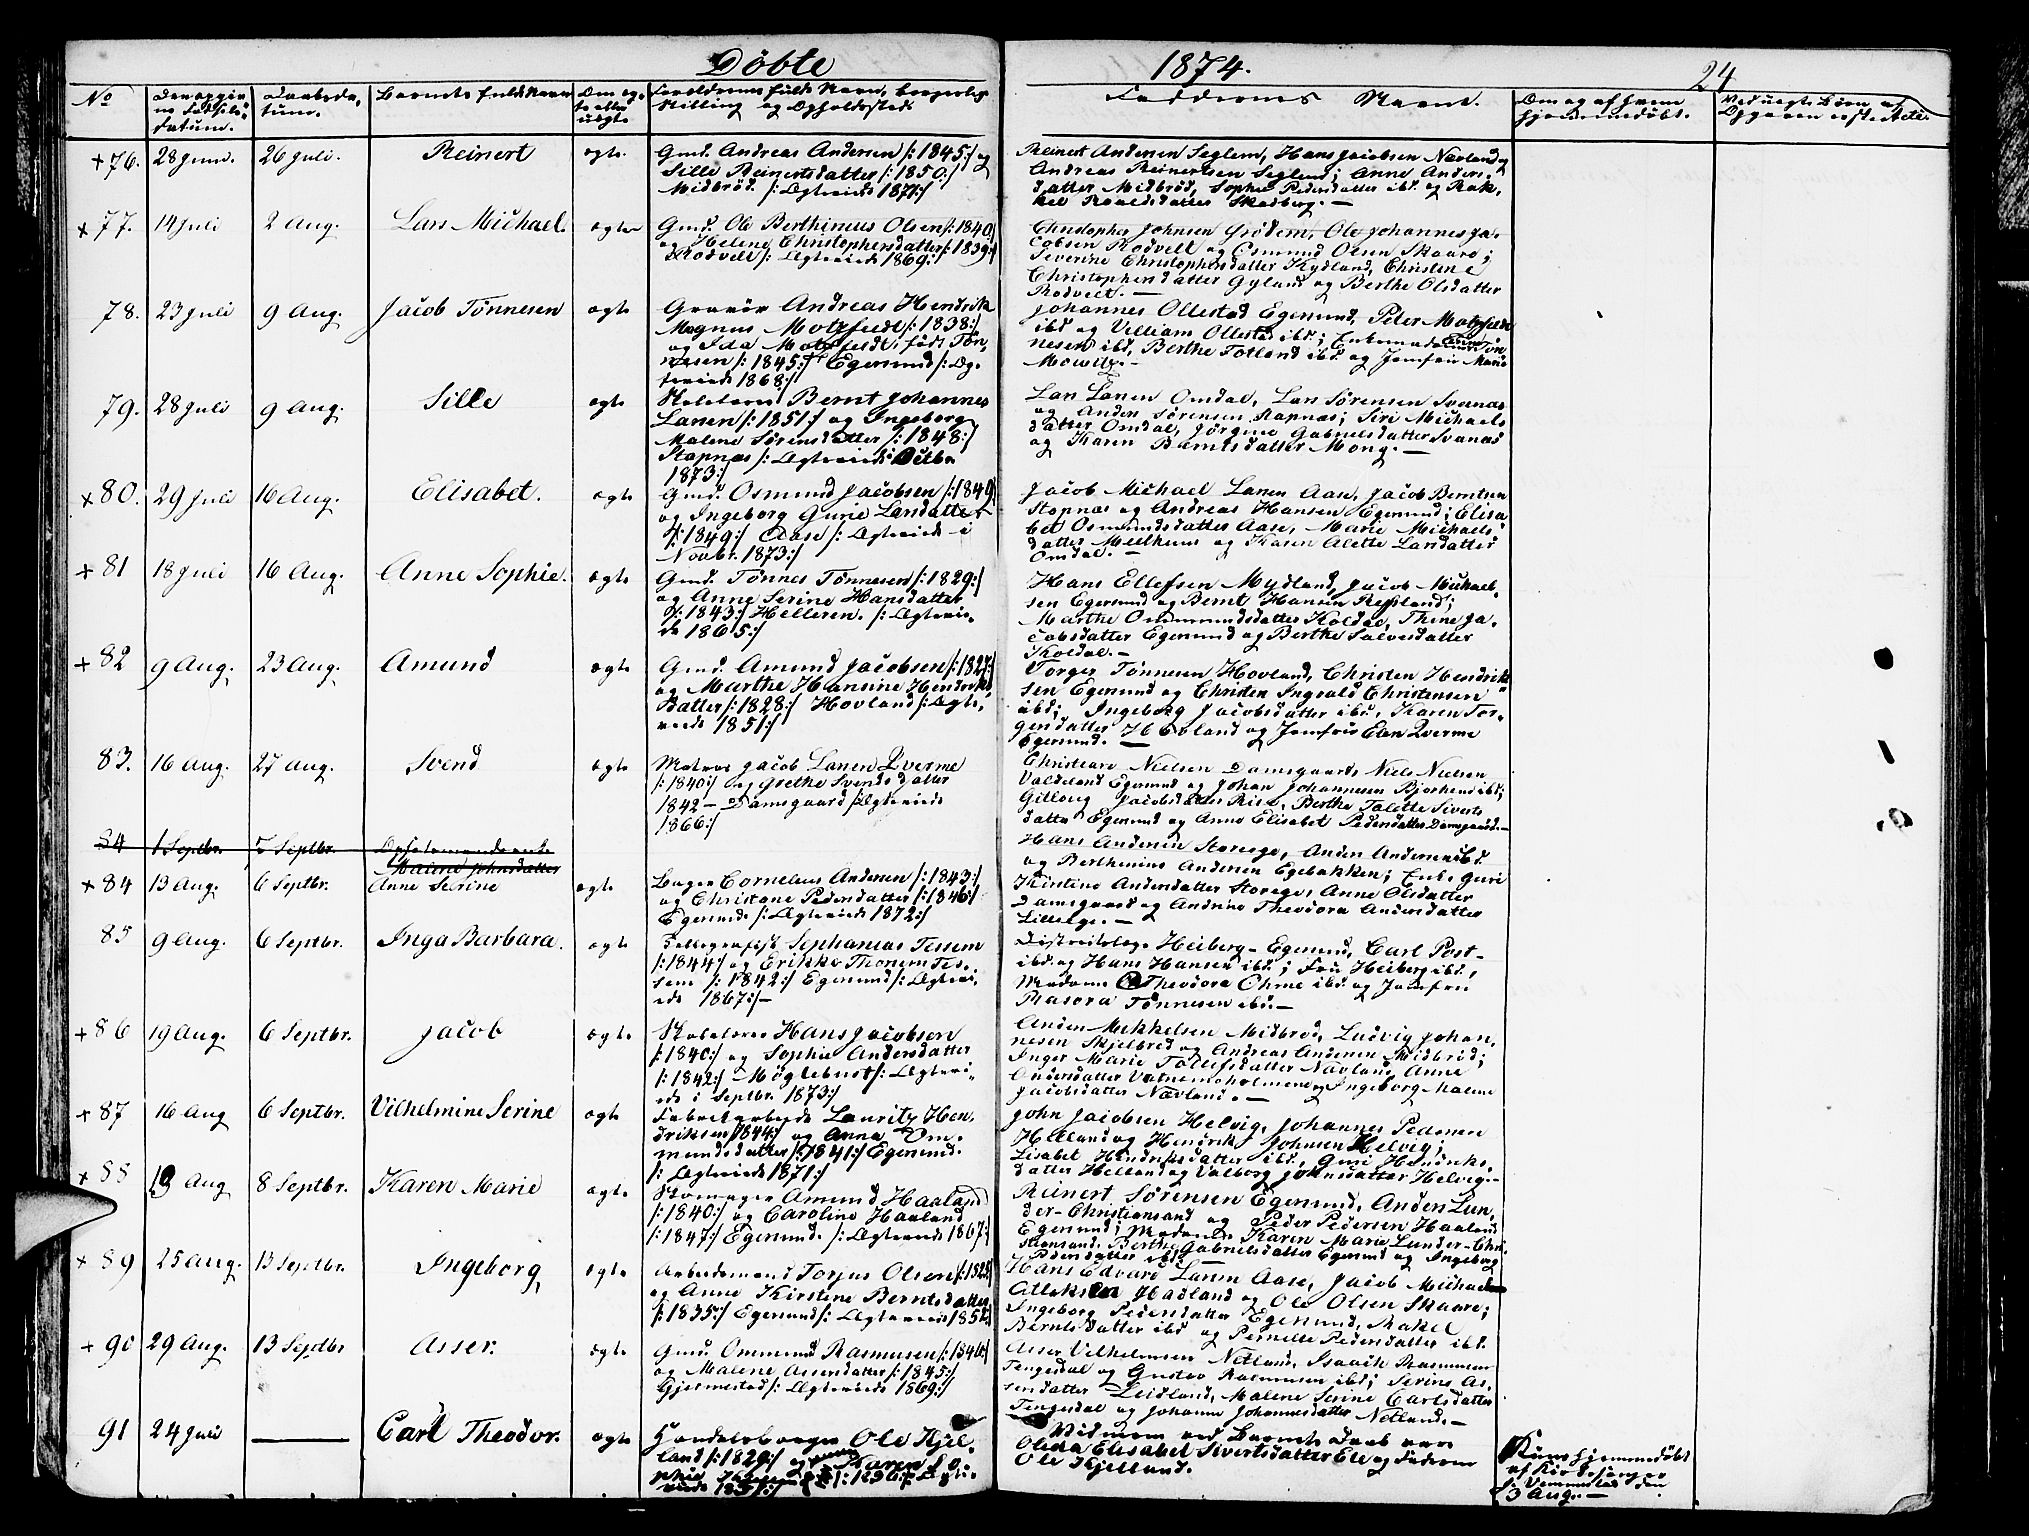 Döbte 1874. 24
No
Den opgivne Fødselsdatum.
Daabsdatum.
Barnets fulde Navn
Om ægte eller uægte
Forældrenes fulde Navn, borgerlige Stilling og Opholdssted.
Faddernes Navne.
Om og af hvem hjemmedøbt.
76. 28 Juni. 26 Juli. Reinert ægte.
Gmd. Andreas Andersen /:1845:/ og
Sille Reinertsdatter /:1850:/
Midbrød. /:Ægteviede 1871:/
Reinert Andersen Seglem, Hans Jacobsen Nævland og
Andreas Reinertsen Seglem; Anne Anders-
datter Midbrød, Sophie Pedersdatter ibd. og Rak-
kel Roaldsdatter Skadberg. —
77. 14 Juli 2 Aug. Lars Michael. ægte
Gmd. Ole Berthinius Olsen /:1840:/
og Helene Christophersdatter /:1839:/
Rodvelt /:Ægteviede 1869:/
Christopher Johnsen Grödem, Ole Johannes Ja-
cobsen Rodvelt og Osmund Olsen Skaare;
Severine Christophersdatter Kydland, Christine
Christophersdatter Gyland og Berthe Olsdatter
Rodvelt. —
78. 23 Juli 9 Aug. Jacob Tönnesen ægte
Gravör Andreas Hendrik
Magnus Motzfeldt /:1838:/
og Ida Motzfeldt, född Tön-
nesen /:1845:/ Egersund /:Æg-
teviede 1868:/
Johannes Ollestad Egersund, Peter Motzfeldt
ibd og Villiam Ollestad ibd.; Enkemadame Tön-
nesen ibd, Berthe Totland ibd. og Jomfru Marie
79. 28 Juli 9 Aug. Sille ægte
Skolelærer Bernt Johannes
Larsen /:1851:/ og Ingeborg
Malene Sörensdatter /:1848:/
Stapnæs /:Ægteviede Octbr
1873:/
Lars Larsen Omdal, Lars Sörensen Svanæs
og Anders Sörensen Stapnæs; Siri Michaels-
datter Omdal, Jörgine Gabrielsdatter Svanæs
og Karen Berntsdatter Mong. —
80. 29 Juli 16 Aug. Elisabet. ægte
Gmd. Osmund Jacobsen /:1849:/
og Ingeborg Gurie Larsdatter
/:1849:/ Aase /:Ægteviede i
Novbr. 1873:/
Jacob Michael Larsen Aase, Jacob Berntsen
Stapnæs og Andreas Hansen Egersund; Elisa-
bet Osmundsdatter Aase, Marie Michaels-
datter Mellhuus og Karen Alette Larsdatter
Omdal. —
81 18 Juli 16 Aug. Anne Sophie. ægte
Gmd. Tönnes Tönnesen /:1829:/
og Anne Serine Hansdatter
/:1843:/ Helleren. /:Ægtevie-
de 1865:/
Hans Ellefsen Mydland, Jacob Michael-
sen Egersund og Bernt Hansen Refsland;
Marthe Osmundsdatter Koldal, Thine Ja-
cobsdatter Egersund og Berthe Salvesdatter
Koldal. —
82 9 Aug. 23 Aug. Amund ægte
Gmd. Amund Jacobsen /:1827:/
og Marthe Hansine Hendriks-
datter /:1828:/ Hovland /:Ægte-
viede 1851:/
Torger Tönnesen Hovland, Christen Hendrik-
sen Egersund og Christen Ingvald Christensen
ibd; Ingeborg Jacobsdatter ibd., Karen Tor-
gersdatter Hovland og Jomfru Elen Qverme
Egersund. —
83. 16 Aug. 27 Aug. Svend ægte
Matros Jacob Larsen Qverme
/:1840:/ og Grethe Svendsdatter
1842 — Damsgaard /:Ægteviede
1866:/
Christian Nielsen Damsgaard, Niels Nielsen
Valdeland Egersund og Johan Johannesen Bjorkens ibd;
Jacobsdatter, Berthe Talette Siverts-
datter Egersund og Anne Elisabet Pedersdatter Damsgaard. —
84 1 Septbr. 5 Septbr. Malene Johnsdatter
84 13 Aug. 6 Septbr. Anne Serine ægte
Bager Cornelius Andersen /:1843:/
og Christiane Pedersdatter /:1846:/
Egersund /:Ægteviede 1872:/
Hans Andersen Storeege, Anders Andersen ibd.
og Berthinius Andersen Egebakken; Enke Guri
Kirstine Andersdatter Storeege, Anne Olsdatter
Damsgaard og Andrine Theodora Andersdatter
Lilleege. —
85 9 Aug. 6 Septbr. Inga Barbara. ægte
Telegrafist Sephanias Tessem
/:1844:/ og Erikke Thorsen Tes-
sem /:1842:/ Egersund /:Ægtevi-
ede 1867:/ —
Districtslæge Heiberg — Egersund, Carl Post —
ibd. og Hans Hansen ibd.; Fru Heiberg ibd.,
Madame Theodora Ohme ibd. og Jomfru
Rasora Tönnesen ibd. —
86 19 Aug. 6 Septbr. Jacob ægte
Skolelærer Hans Jacobsen
/:1840:/ og Sophie Andersdatter
/:1842:/ Möglebust /:Ægtevi-
ede i Septbr. 1873:/
Anders Mikkelsen Midbröd, Ludvig Johan-
nesen Skjelbred og Andreas Andersen Midbröd;
Inger Marie Tollefsdatter Nævland, Anne
Andersdatter Vatnemsholmene og Ingeborg Malene
Jacobsdatter Nævland. —
87 16 Aug 6 Septbr. Vilhelmine Serine ægte
Fabrikarbeide Lauritz Hen-
driksen /:1844:/ og Anna Om-
mundsdatter /:1841:/ Egersund.
/:Ægteviede 1871:/
John Jacobsen Helvig, Johannes Pedersen
Helland og Henrik Johnsen Helvig;
Lisabet Hendriksdatter ibd., Guri Hendriks-
datter Helland og Valborg Johnsdatter Helvig. —
88 Aug 8 Septbr. Karen Marie ægte
Skomager Amund Haaland
/:1840:/ og Caroline Haaland
/:1847:/ Egersund. /:Ægteviede 1867:/
Reinert Sörensen Egersund, Anders Lun-
der — Christiansand og Peder Pedersen Haaland
Egersund; Madame Karen Marie Lunder — Chri-
stiansand, Berthe Gabrielsdatter Egersund og Ingeborg
Pedersdatter ibd.
89 25 Aug. 13 Septbr. Ingeborg, ægte
Arbeidsmand Torjus Olsen /:1828:/
og Anne Kirstine Berntsdatter
/:1835:/ Egersund /:Ægteviede 1852:/
Hans Edvard Larsen Aase, Jacob Michael
Atleksen Hadland og Ole Olsen Skaare;
Ingeborg Pedersdatter Egersund, Rakel
Berntsdatter ibd og Pernille Pedersdatter ibd.
90 29 Aug. 13 Septbr Asser. ægte
Gmd. Ommund Rasmussen /:1840:/
og Malene Assersdatter /:1845:/
Gjermestad /:Ægteviede 1869:/
Asser Vilhelmsen Netland, Isaach Rasmussen
Tengesdal og Gustav Rasmussen ibd; Serine As-
sersdatter Leidland, Malene Serine Carlsdatter
Tengesdal og Johanne Johannesdatter Netland. —
91 24 Juli — Carl Theodor. ægte
Handelsborger Ole Kjel-
land /:1829:/ og Karen So-
phie /:1836:/ Ægte-
viede 1857:/
Vidnerne ved Barnets Daab vare
Oleda Elisabet Sivertsdatter Eie og Faderen
Ole Kjelland.
Kuns hjemmedøbt
af Kirkesanger
3 Aug. —